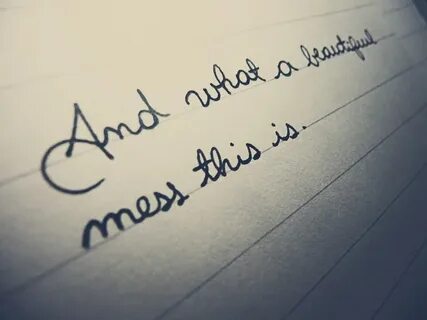 And what a beautiful
mess this is.